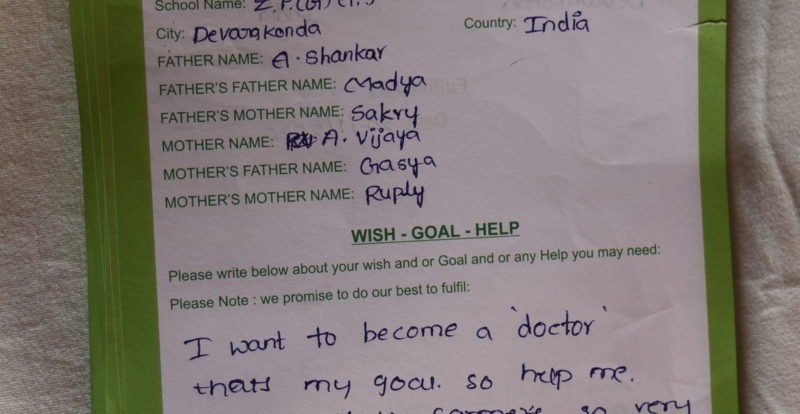 School Name: Z.P.(G)
City: Devarakonda Country: India
FATHER NAME: A. Shankar
FATHER'S FATHER NAME: Madya
FATHER'S MOTHER NAME: Sakry
MOTHER NAME: A. Vijaya
MOTHER'S FATHER NAME: Gasya
MOTHER'S MOTHER NAME: Ruply
WISH - GOAL - HELP
Please write below about your wish and or Goal and or any Help you may need:
Please Note : we promise to do our best to fulfil:
I want to become a 'doctor'
thats my goal. so help me.
so very